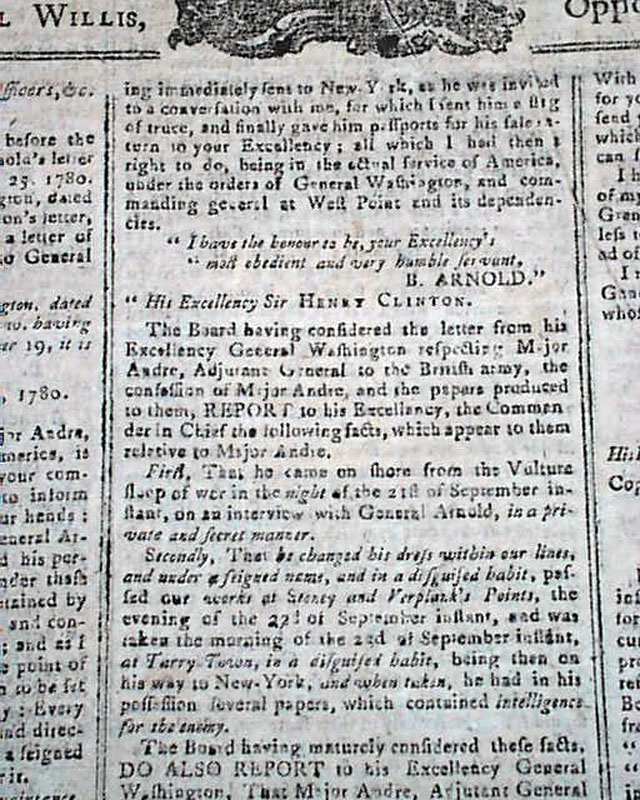 L WILLIS,
fficers, &c.
before the
nold's letter
25. 1780.
gton, dated
on's letter,
a letter of
to General
gton, dated
having
er 19, it is
, 1780.
jor Andre,
merica, is
your com-
to inform
ur hands:
eneral Ar-
d his per-
nder these
tained by
and con-
; and as I
point of
to be set
y: Every
nd direc-
a feigned
r it.
ing immediately ſent to New-York, as he was invited
to a converſation with me, for which I ſent him a flag
of truce, and finally gave him paſſports for his ſafe re-
turn to your Excellency; all which I had then a
right to do, being in the actual ſervice of America,
under the orders of General Waſhington, and com-
manding general at Weſt Point and its dependen-
cies.
" I have the honour to be, your Excellency's
" moſt obedient and very humble ſervant,
B. ARNOLD."
" His Excellency Sir HENRY CLINTON.
The Board having conſidered the letter from his
Excellency General Waſhington reſpecting Major
Andre, Adjutant General to the Britiſh army, the
confeſſion of Major Andre, and the papers produced
to them, REPORT to his Excellency, the Comman
der in Chief the following facts, which appear to them
relative to Major Andre.
Firſt, That he came on ſhore from the Vulture
ſloop of war in the night of the 21ſt of September in-
ſtant, on an interview with General Arnold, in a pri-
vate and ſecret manner.
Secondly, That he changed his dreſs within our lines,
and under a feigned name, and in a diſguiſed habit, paſ-
ſed our works at Stoney and Verplank's Points, the
evening of the 22d of September inſtant, and was
taken the morning of the 23d of September inſtant,
at Tarry Town, in a diſguiſed habit, being then on
his way to New-York, and when taken, he had in his
poſſeſſion ſeveral papers, which contained intelligence
for the enemy.
The Board having maturely conſidered theſe facts,
DO ALSO REPORT to his Excellency General
Waſhington, That Major Andre, Adjutant General
Oppo
With
for yo
ſend
which
can
I h
of my
Gran
leſs t
ad of
I
Gen
whoſ
His
Cop